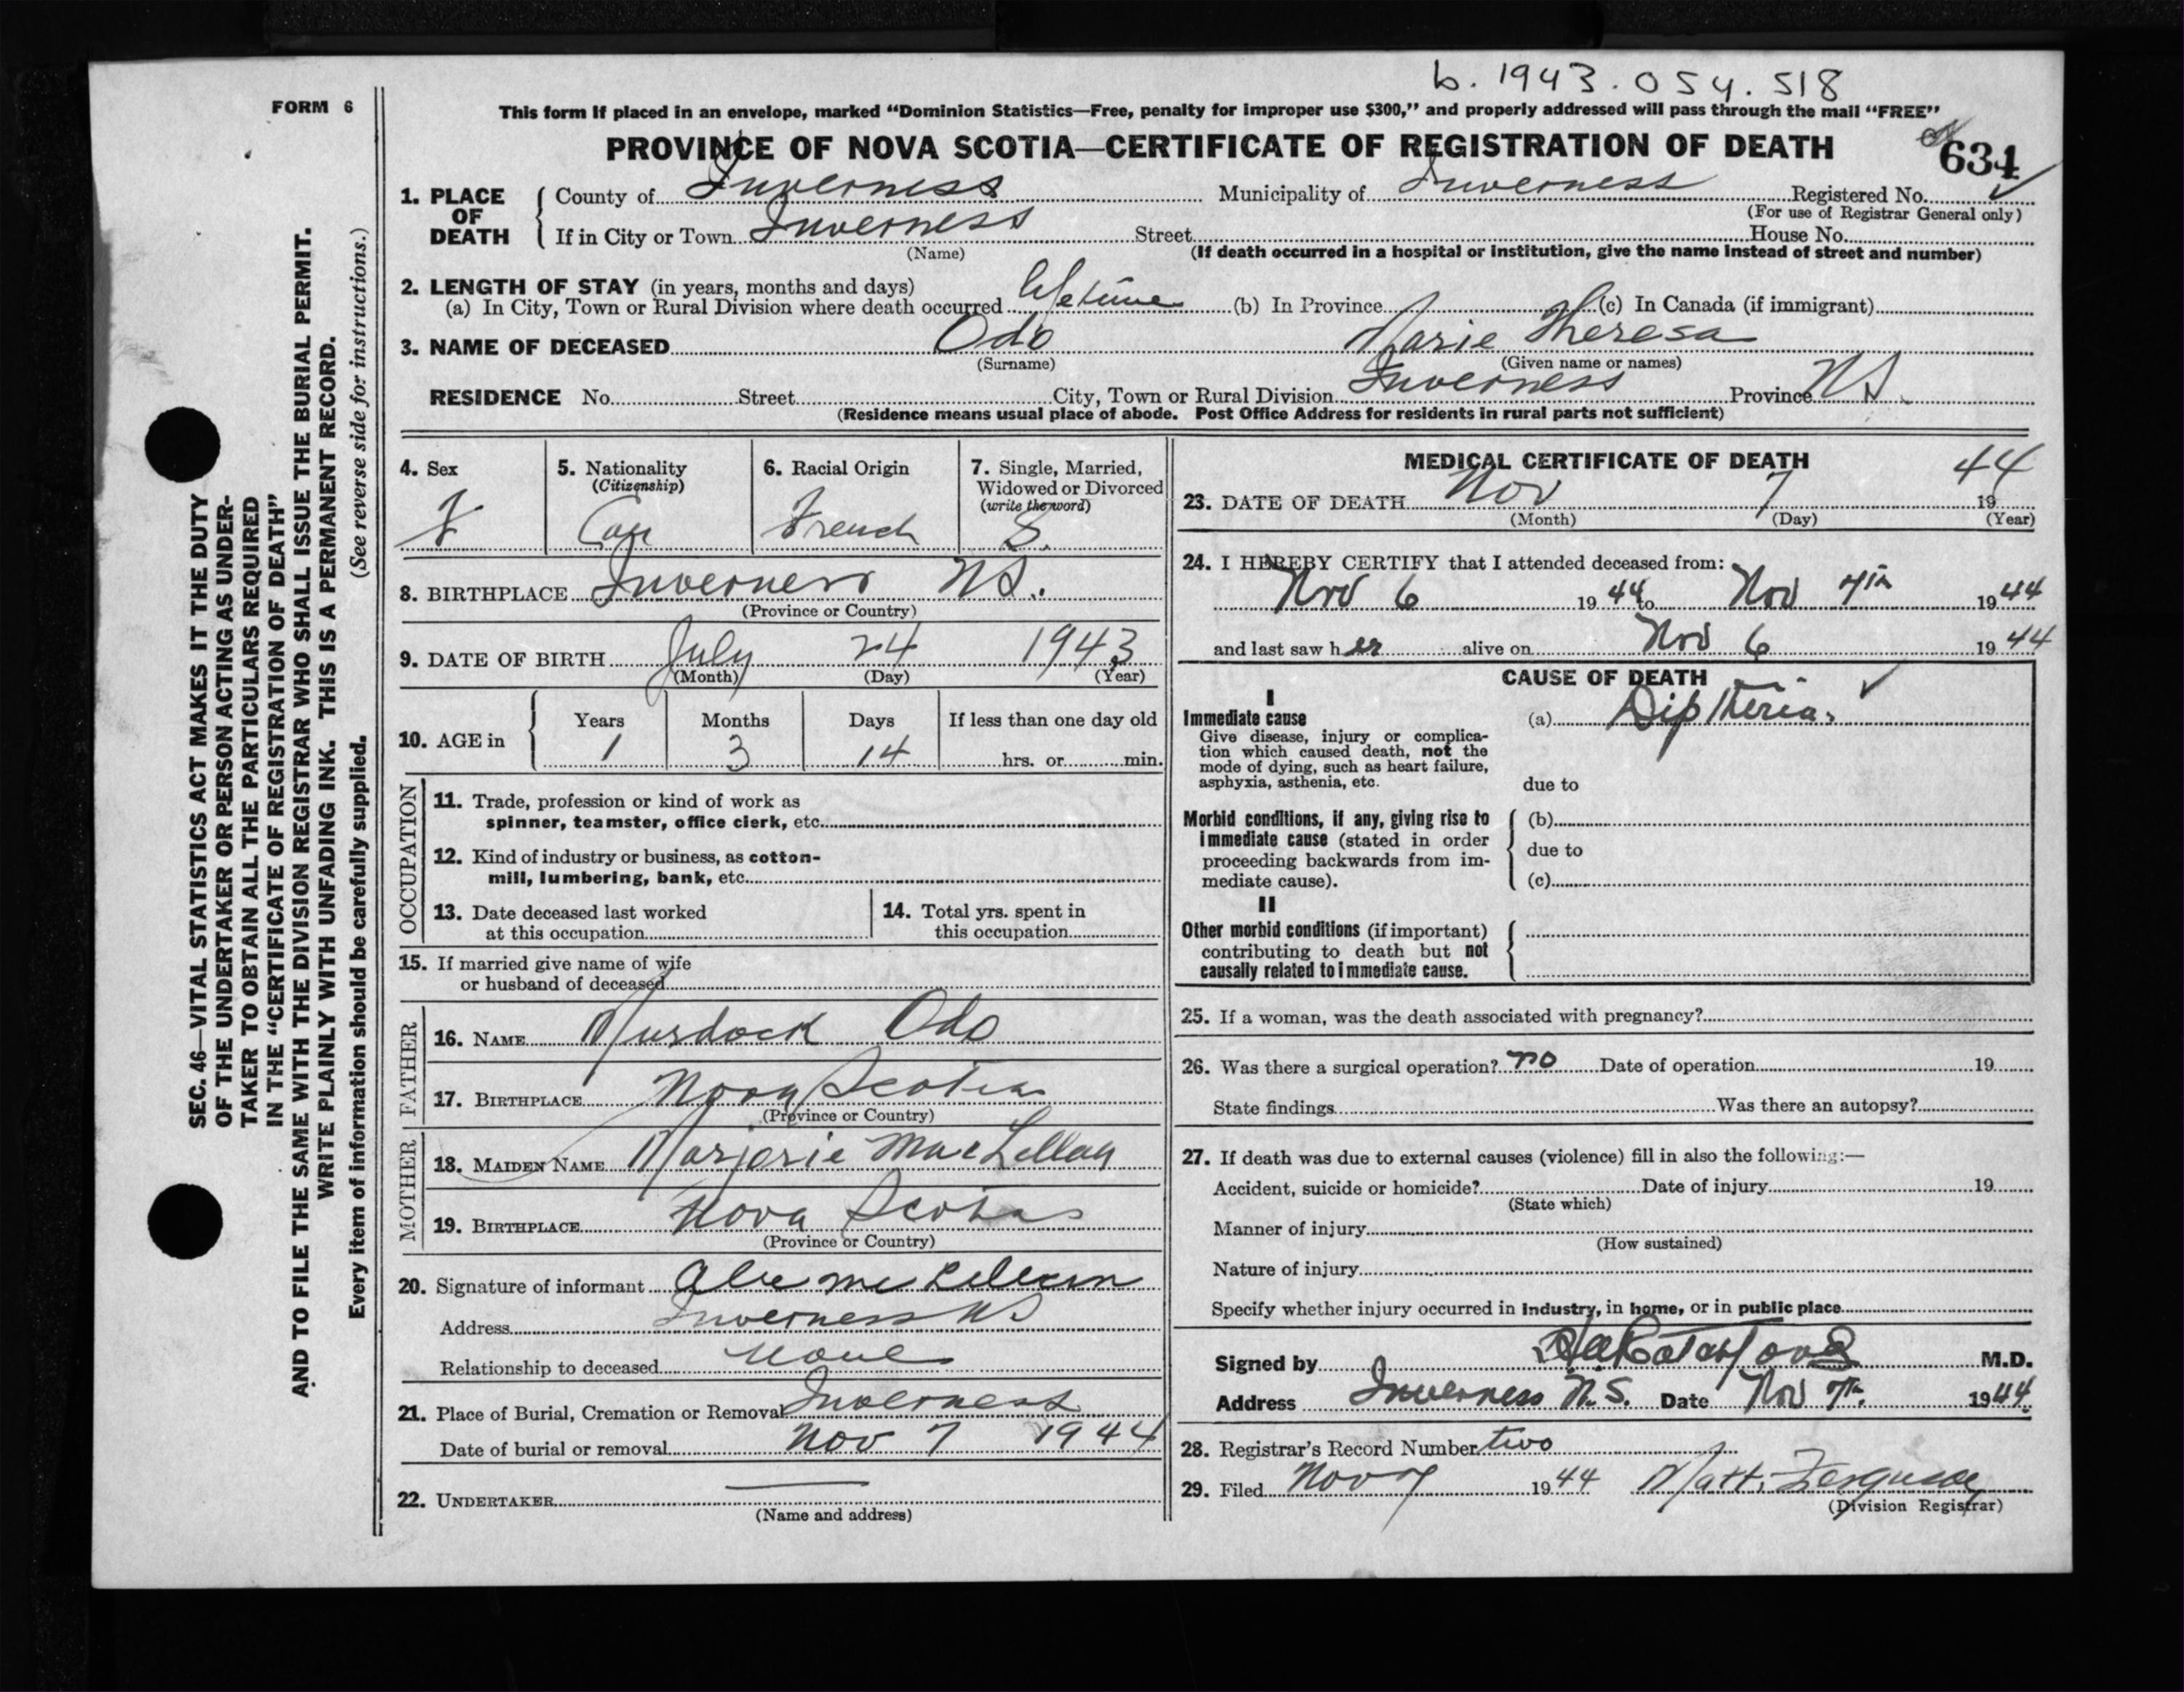 b. 1943. 054. 518
FORM 6
This form if placed in an envelope, marked "Dominion Statistics—Free, penalty for improper use $300," and properly addressed will pass through the mail "FREE"
PROVINCE OF NOVA SCOTIA—CERTIFICATE OF REGISTRATION OF DEATH
634
1. PLACE OF DEATH County of Inverness Municipality of Inverness Registered No.
(For use of Registrar General only)
If in City or Town Inverness Street House No.
(Name) (If death occurred in a hospital or institution, give the name instead of street and number)
2. LENGTH OF STAY (in years, months and days)
(a) In City, Town or Rural Division where death occurred lifetime (b) In Province (c) In Canada (if immigrant)
3. NAME OF DECEASED Odo Marie Theresa
(Surname) (Given name or names)
RESIDENCE No. Street City, Town or Rural Division Inverness Province N.S.
(Residence means usual place of abode. Post Office Address for residents in rural parts not sufficient)
4. Sex
F
5. Nationality
(Citizenship)
Can
6. Racial Origin
French
7. Single, Married,
Widowed or Divorced
(write the word)
S.
8. BIRTHPLACE Inverness N.S.
(Province or Country)
9. DATE OF BIRTH July 24 1943
(Month) (Day) (Year)
10. AGE in
Years Months Days If less than one day old
1 3 14 hrs. or min.
OCCUPATION
11. Trade, profession or kind of work as
spinner, teamster, office clerk, etc.
12. Kind of industry or business, as cotton-
mill, lumbering, bank, etc.
13. Date deceased last worked
at this occupation
14. Total yrs. spent in
this occupation
15. If married give name of wife
or husband of deceased
FATHER
16. NAME Murdock Odo
17. BIRTHPLACE Nova Scotia
(Province or Country)
MOTHER
18. MAIDEN NAME Marjorie MacLellan
19. BIRTHPLACE Nova Scotia
(Province or Country)
20. Signature of informant Alex McLellan
Address Inverness NS
Relationship to deceased None
21. Place of Burial, Cremation or Removal Inverness
Date of burial or removal Nov 7 1944
22. UNDERTAKER —
(Name and address)
MEDICAL CERTIFICATE OF DEATH
23. DATE OF DEATH Nov 7 1944
(Month) (Day) (Year)
24. I HEREBY CERTIFY that I attended deceased from:
Nov 6 1944 to Nov 7th 1944
and last saw her alive on Nov 6 1944
CAUSE OF DEATH
I
Immediate cause
Give disease, injury or complica-
tion which caused death, not the
mode of dying, such as heart failure,
asphyxia, asthenia, etc.
(a) Diptheria.
due to
Morbid conditions, if any, giving rise to
immediate cause (stated in order
proceeding backwards from im-
mediate cause).
(b)
due to
(c)
II
Other morbid conditions (if important)
contributing to death but not
causally related to immediate cause.
25. If a woman, was the death associated with pregnancy?
26. Was there a surgical operation? no Date of operation 19
State findings Was there an autopsy?
27. If death was due to external causes (violence) fill in also the following:—
Accident, suicide or homicide? Date of injury 19
(State which)
Manner of injury
(How sustained)
Nature of injury
Specify whether injury occurred in industry, in home, or in public place
Signed by M.D.
Address Inverness N.S. Date Nov 7th. 1944.
28. Registrar's Record Number two
29. Filed Nov 7 1944 Matt. Ferguson
(Division Registrar)
SEC. 46—VITAL STATISTICS ACT MAKES IT THE DUTY
OF THE UNDERTAKER OR PERSON ACTING AS UNDER-
TAKER TO OBTAIN ALL THE PARTICULARS REQUIRED
IN THE "CERTIFICATE OF REGISTRATION OF DEATH"
AND TO FILE THE SAME WITH THE DIVISION REGISTRAR WHO SHALL ISSUE THE BURIAL PERMIT.
WRITE PLAINLY WITH UNFADING INK. THIS IS A PERMANENT RECORD.
Every item of information should be carefully supplied. (See reverse side for instructions.)